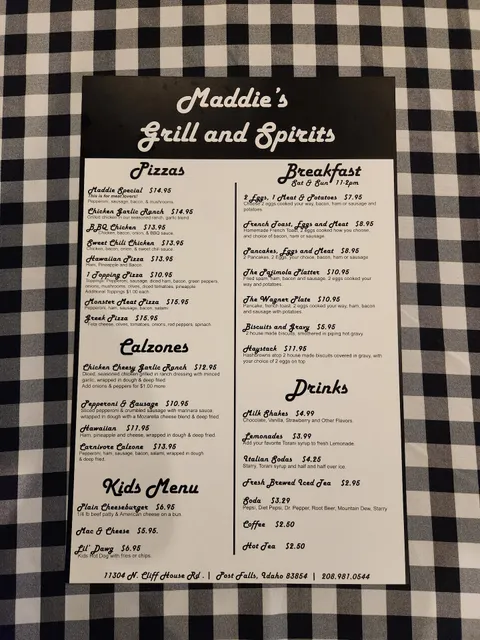 Maddie's
Grill and Spirits
Pizzas
Maddie Special $14.95
This is for meat lovers!
Pepperoni, sausage, bacon, & mushrooms.
Chicken Garlic Ranch $14.95
Grilled chicken in our seasoned ranch, garlic blend
BBQ Chicken $13.95
Chicken, bacon, onion, & BBQ sauce
Sweet Chili Chicken $13.95
Chicken, bacon, onion, & sweet chili sauce.
Hawaiian Pizza $13.95
Ham, Pineapple and Bacon
1 Topping Pizza $10.95
Toppings: Pepperoni, sausage, diced ham, bacon, green peppers,
onions, mushrooms, olives, diced tomatoes, pineapple
Additional Toppings $1.00 each
Monster Meat Pizza $15.95
Pepperoni, ham, sausage, bacon, salami
Greek Pizza $15.95
Feta cheese, olives, tomatoes, onions, red peppers, spinach.
Calzones
Chicken Cheesy Garlic Ranch $12.95
Diced, seasoned chicken grilled in ranch dressing with minced
garlic, wrapped in dough & deep fried
Add onions & peppers for $1.00 more
Pepperoni & Sausage $10.95
Sliced pepperoni & crumbled sausage with marinara sauce
wrapped in dough with a Mozarella cheese blend & deep fried
Hawaiian $11.95
Ham, pineapple and cheese, wrapped in dough & deep fried.
Carnivore Calzone $13.95
Pepperoni, ham, sausage, bacon, salami, wrapped in dough
& deep fried.
Kids Menu
Plain Cheeseburger $6.95
1/4 lb beef patty & American cheese on a bun.
Mac & Cheese $5.95.
Lil' Dawg $6.95
Kids Hot Dog with fries or chips.
Breakfast
Sat & Sun 11-2pm
2 Eggs, 1 Meat & Potatoes $7.95
Choose 2 eggs cooked your way, bacon, ham or sausage and
potatoes.
French Toast, Eggs and Meat $8.95
Homemade French Toast, 2 eggs cooked how you choose,
and choice of bacon, ham or sausage.
Pancakes, Eggs and Meat $8.95
2 Pancakes, 2 Eggs, your choice, bacon, ham or sausage
The Pajimola Platter $10.95
Fried spam, ham, bacon and sausage, 2 eggs cooked your
way and potatoes.
The Wagner Plate $10.95
Pancake, french toast, 2 eggs cooked your way, ham, bacon
and sausage with potatoes.
Biscuits and Gravy $5.95
2 house made biscuits, smothered in piping hot gravy.
Haystack $11.95
Hashbrowns atop 2 house made biscuits covered in gravy, with
your choice of 2 eggs on top.
Drinks
Milk Shakes $4.99
Chocolate, Vanilla, Strawberry and Other Flavors.
Lemonades $3.99
Add your favorite Torani syrup to fresh Lemonade.
Italian Sodas $4.25
Starry, Torani syrup and half and half over ice.
Fresh Brewed Iced Tea $2.95
Soda $3.29
Pepsi, Diet Pepsi, Dr. Pepper, Root Beer, Mountain Dew, Starry
Coffee $2.50
Hot Tea $2.50
11304 N. Cliff House Rd. | Post Falls, Idaho 83854 | 208.981.0544